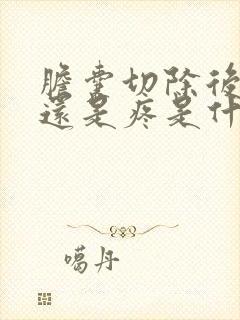 膽囊切除後
還是疼是什
噶丹